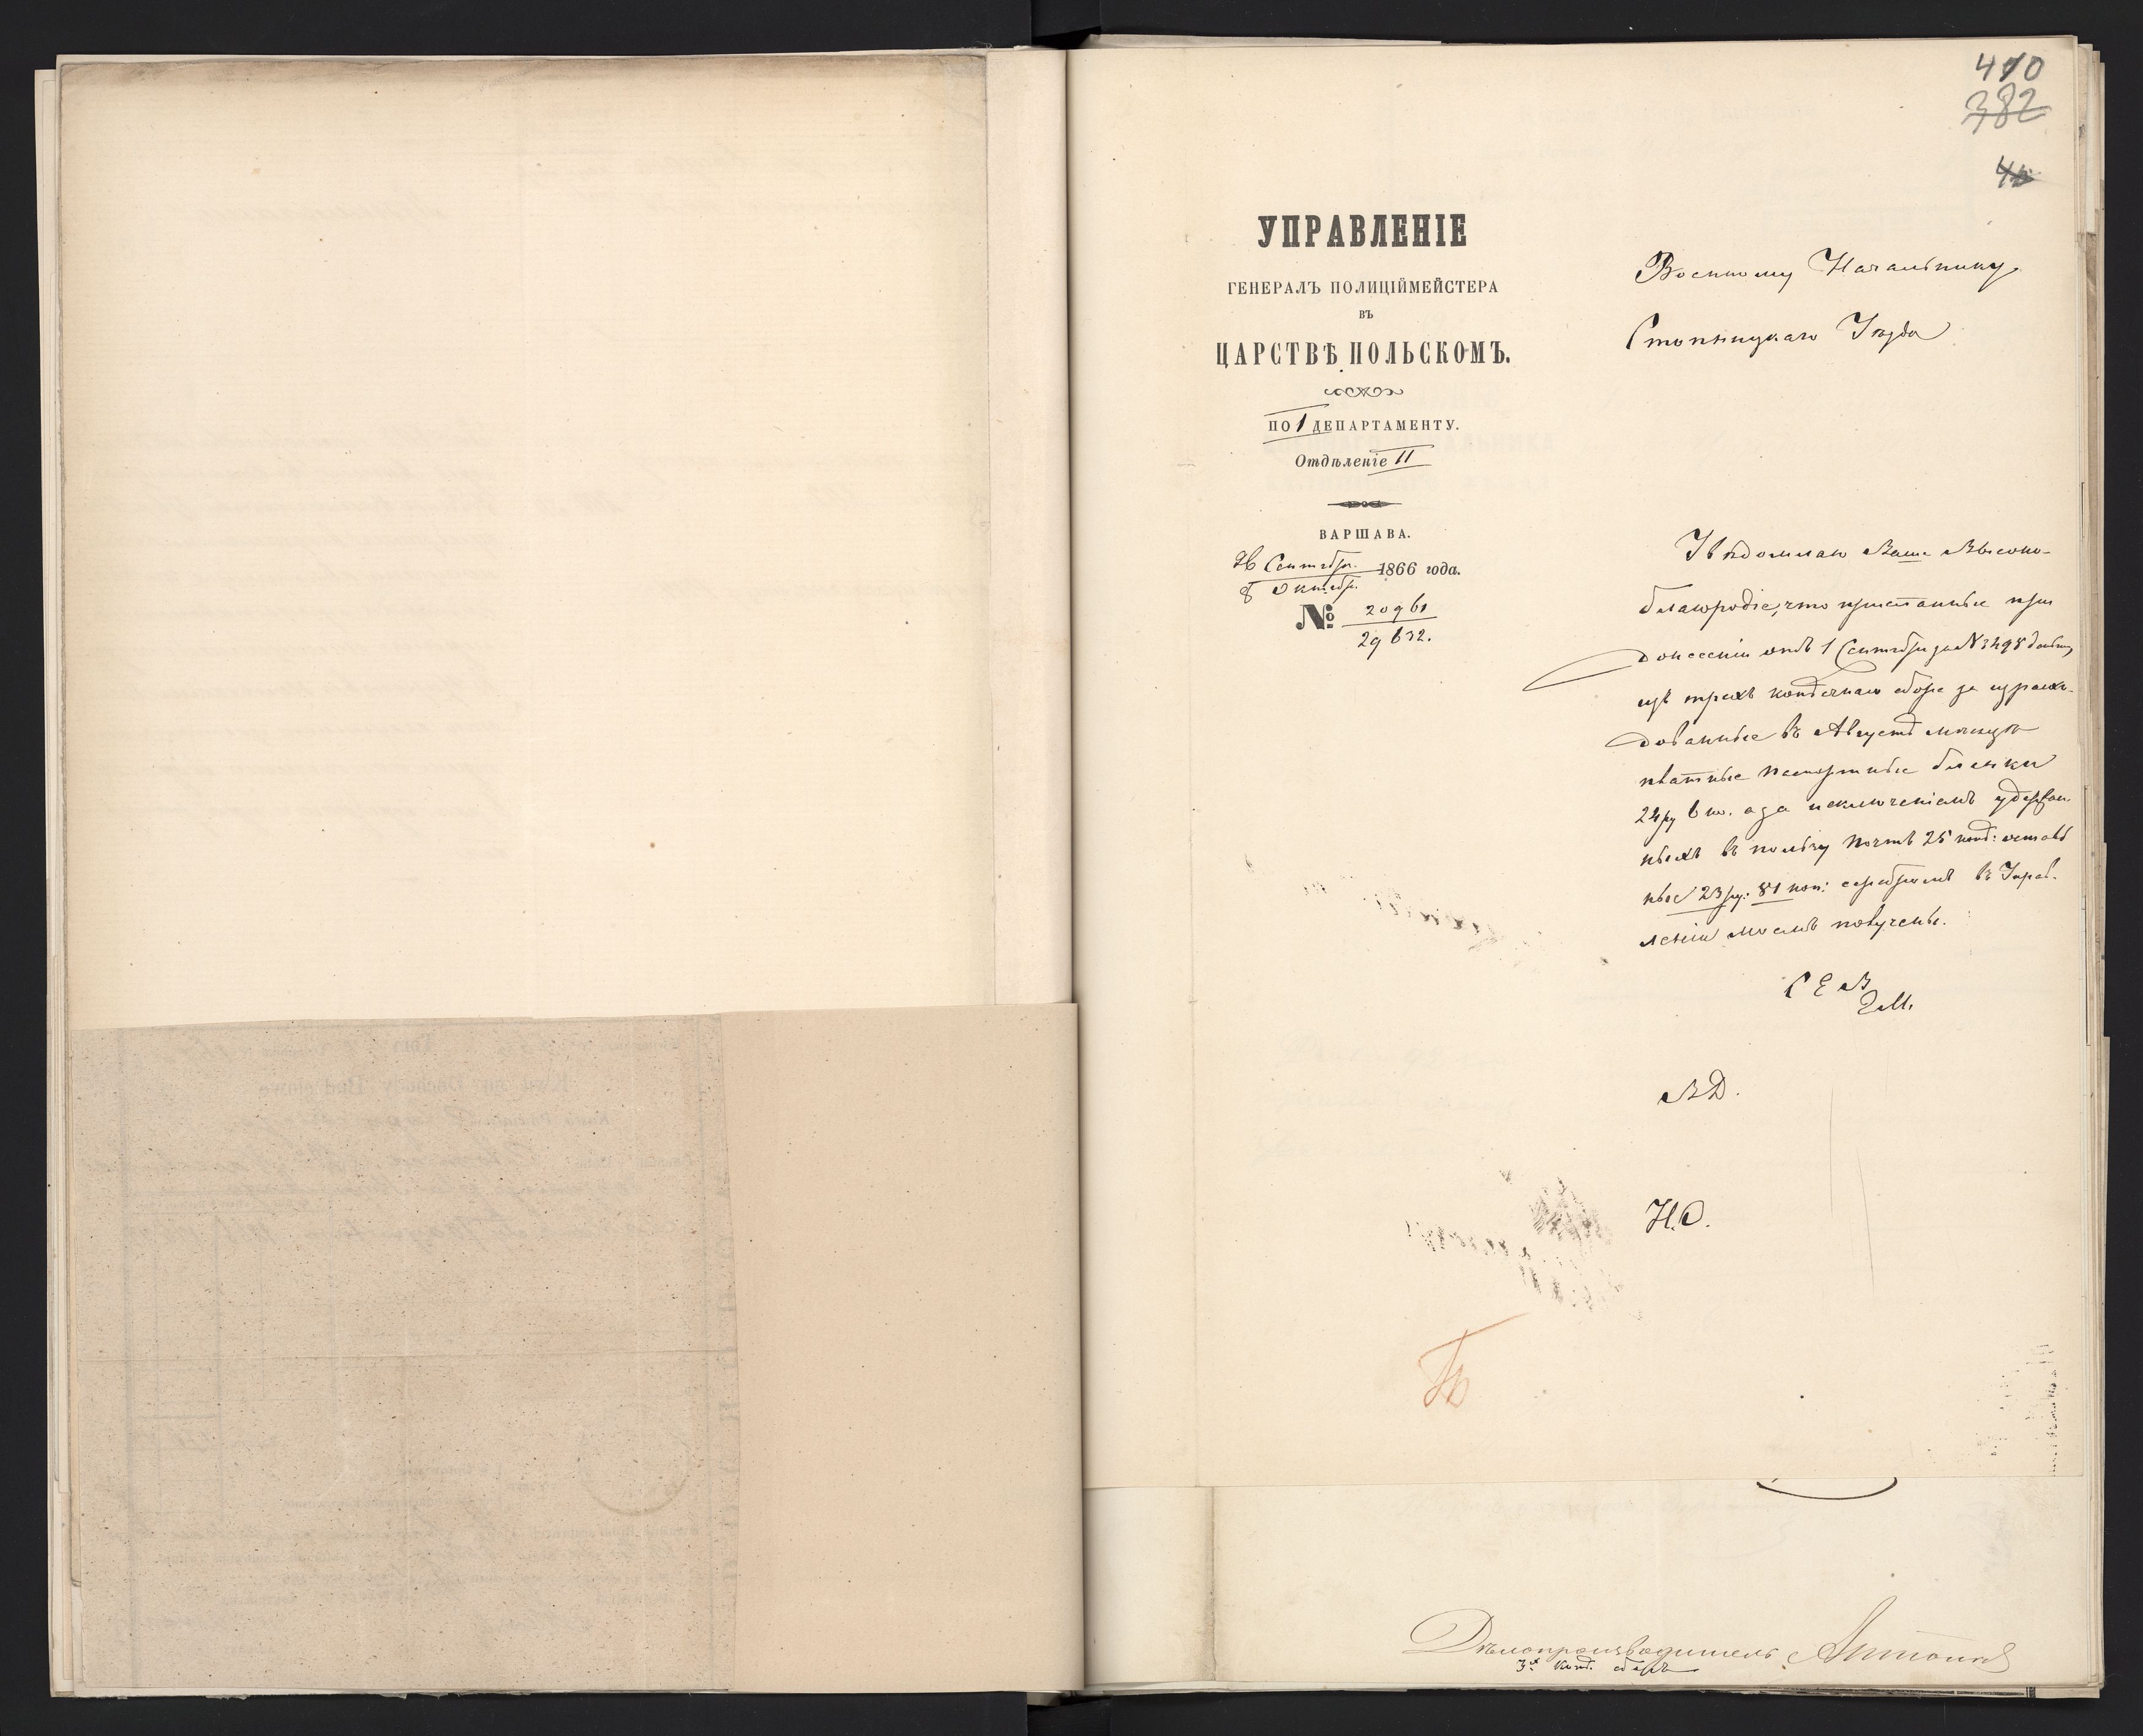 410
382
УПРАВЛЕНІЕ
ГЕНЕРАЛЪ ПОЛИЦІЙМЕЙСТЕРА
ВЪ
ЦАРСТВѢ ПОЛЬСКОМЪ.
ПО 1 ДЕПАРТАМЕНТУ.
Отдѣленіе II
ВАРШАВА.
26 Сентября
8 Октября 1866 года.
№ 20961
29632.
Военному Начальнику
Стопницкаго Уѣзда
Увѣдомляю Ваше Высоко-
благородіе, что присланные при
донесеніи отъ 1 Сентября за № 3498 деньги
изъ трехъ копѣечнаго сбора за израсхо-
дованные въ Августѣ мѣсяцѣ
платные паспортные бланки
24 ру 6 ко. а за исключеніемъ удержан-
ныхъ въ пользу почтъ 25 коп: осталь
ные 23 ру: 81 коп: серебромъ въ Управ-
леніи моемъ получены.
С Е В
Г.М.
В Д.
Н.О.
Дѣлопроизводитель Антонов
3х коп. сборъ